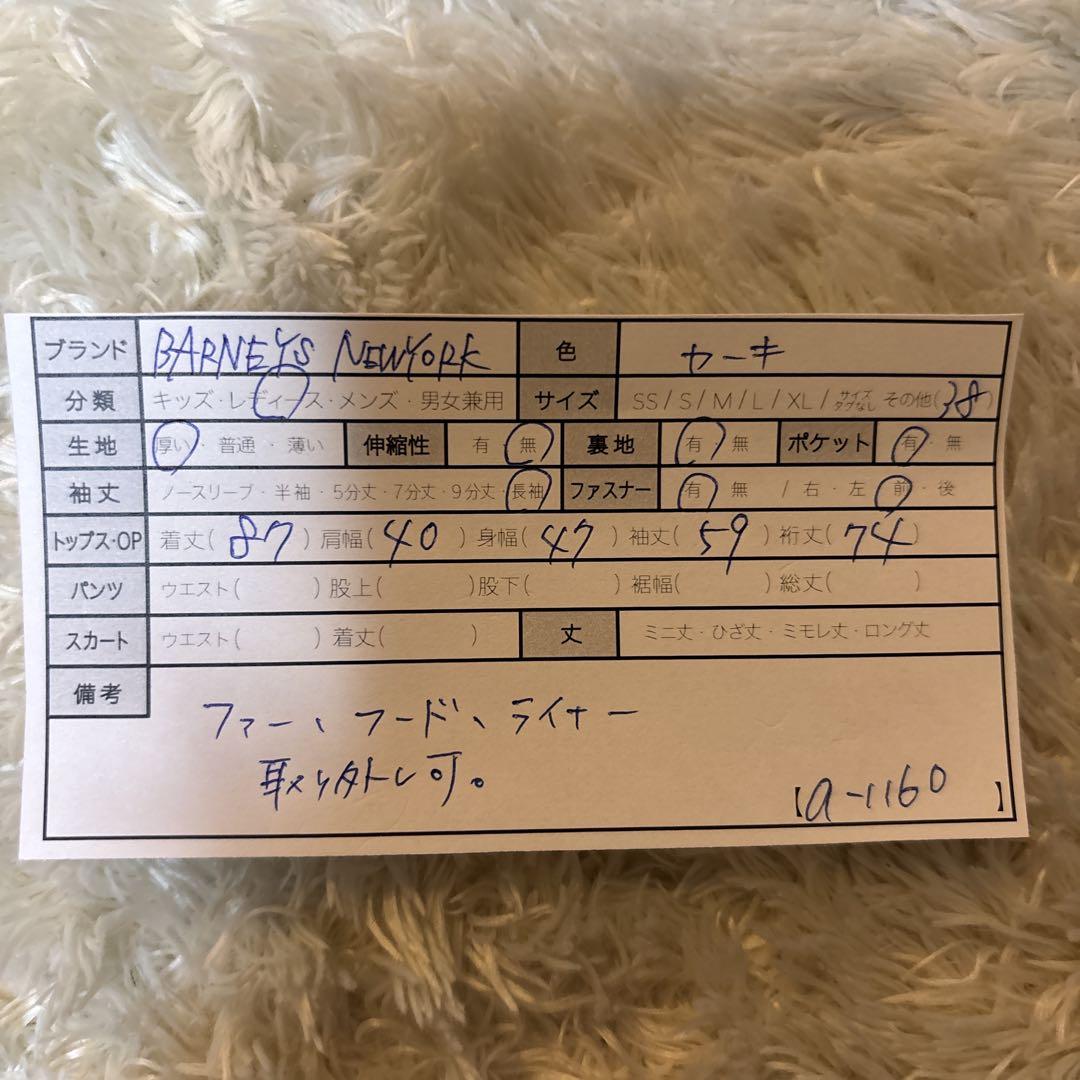 ブランド BARNEYS NEWYORK 色 カーキ
分類 キッズ・レディース・メンズ・男女兼用 サイズ SS/S/M/L/XL/サイズタグなし その他(38)
生地 厚い・普通・薄い 伸縮性 有・無 裏地 有・無 ポケット 有・無
袖丈 ノースリーブ・半袖・5分丈・7分丈・9分丈・長袖 ファスナー 有・無 / 右・左・前・後
トップス・OP 着丈(87) 肩幅(40) 身幅(47) 袖丈(59) 裄丈(74)
パンツ ウエスト( ) 股上( ) 股下( ) 裾幅( ) 総丈( )
スカート ウエスト( ) 着丈( ) 丈 ミニ丈・ひざ丈・ミモレ丈・ロング丈
備考
ファー、フード、ライナー
取り外し可。
【a-1160】